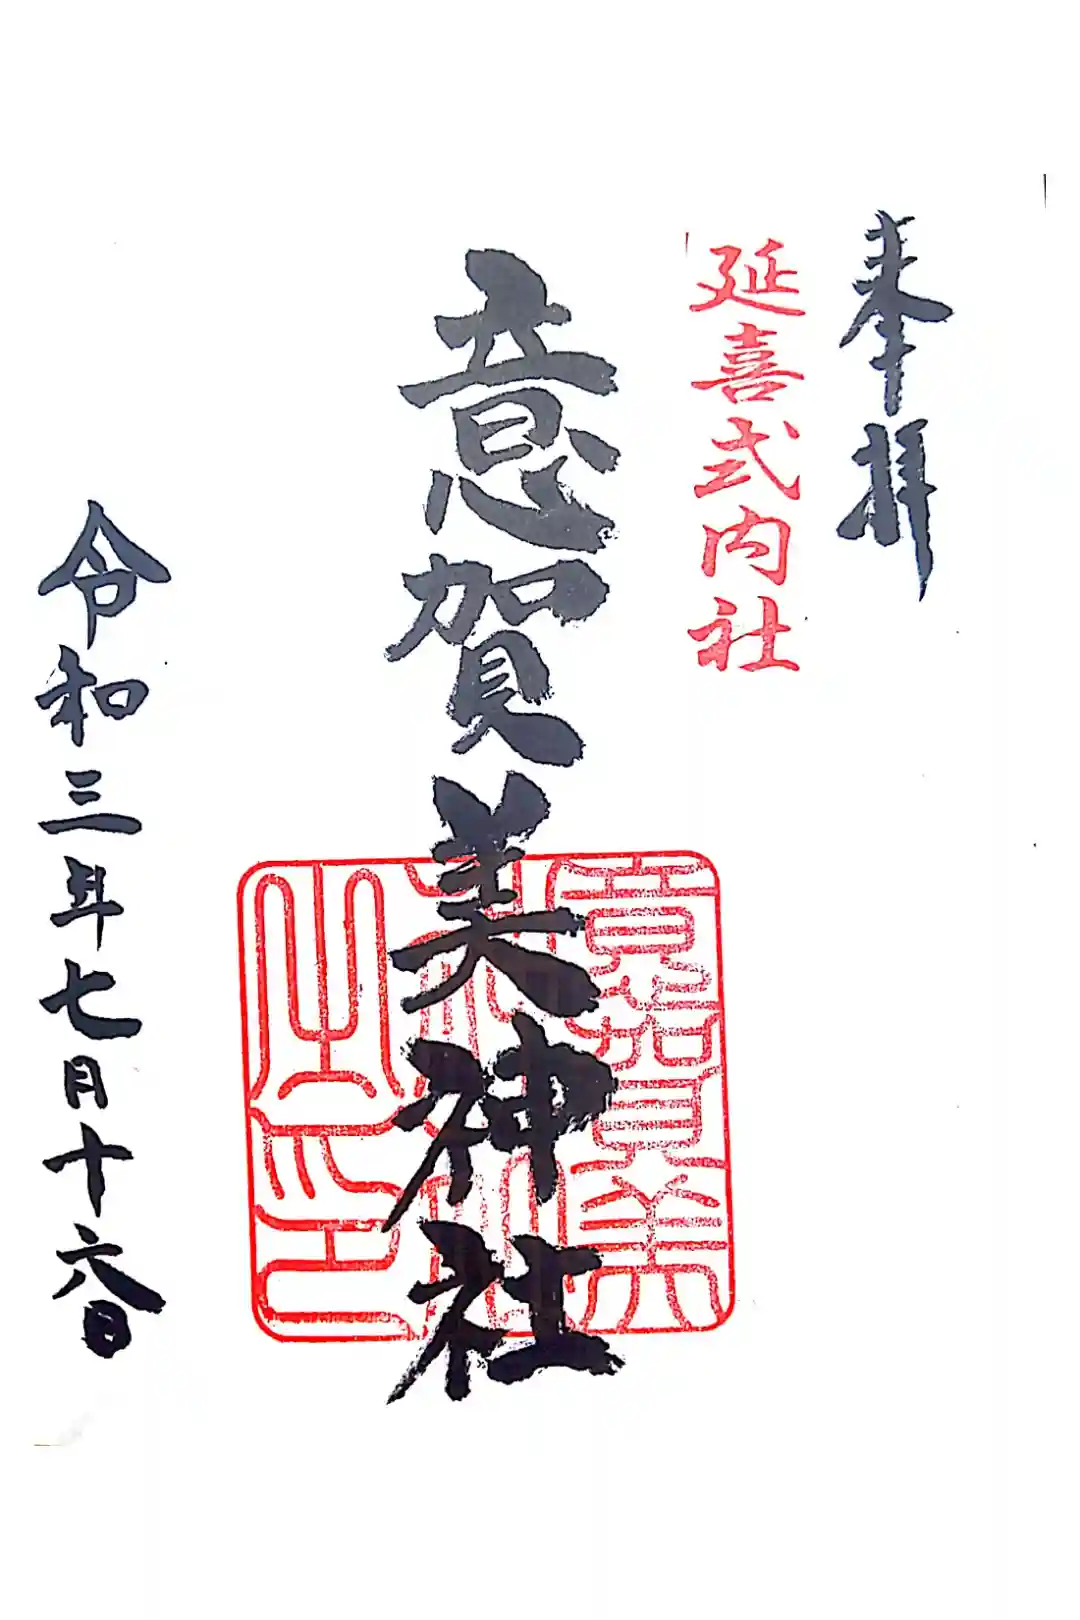 奉拝
延喜式内社
意賀美神社
意賀美
神社
之印
令和三年七月十六日